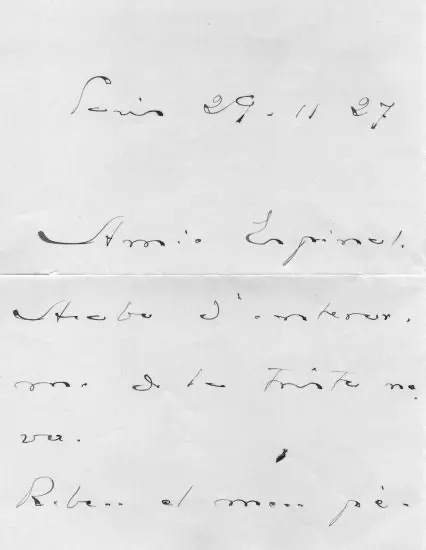 Paris 29. 11 27
Amic Espinal.
Acabo d'enterar.
me de la trista no
va.
Rebeu el meu pè.